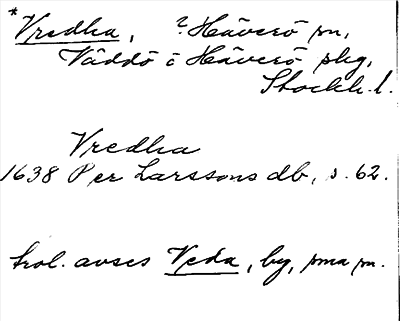 *Vredha, ? Häverö sn,
Väddö ö Häverö skg,
Stockh. l.
Vredha
1638 Per Larssons db, s. 62.
trol. avses Veda, by, sma sn.